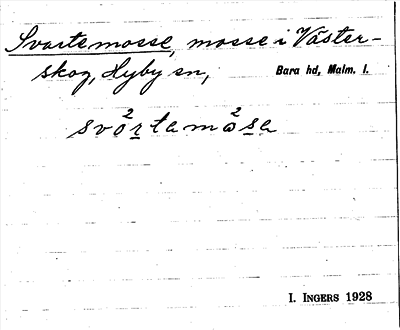 Svartemosse, mosse i Väster-
skog, Hyby sn, Bara hd, Malm. l.
svo²rtamo²sa
I. INGERS 1928